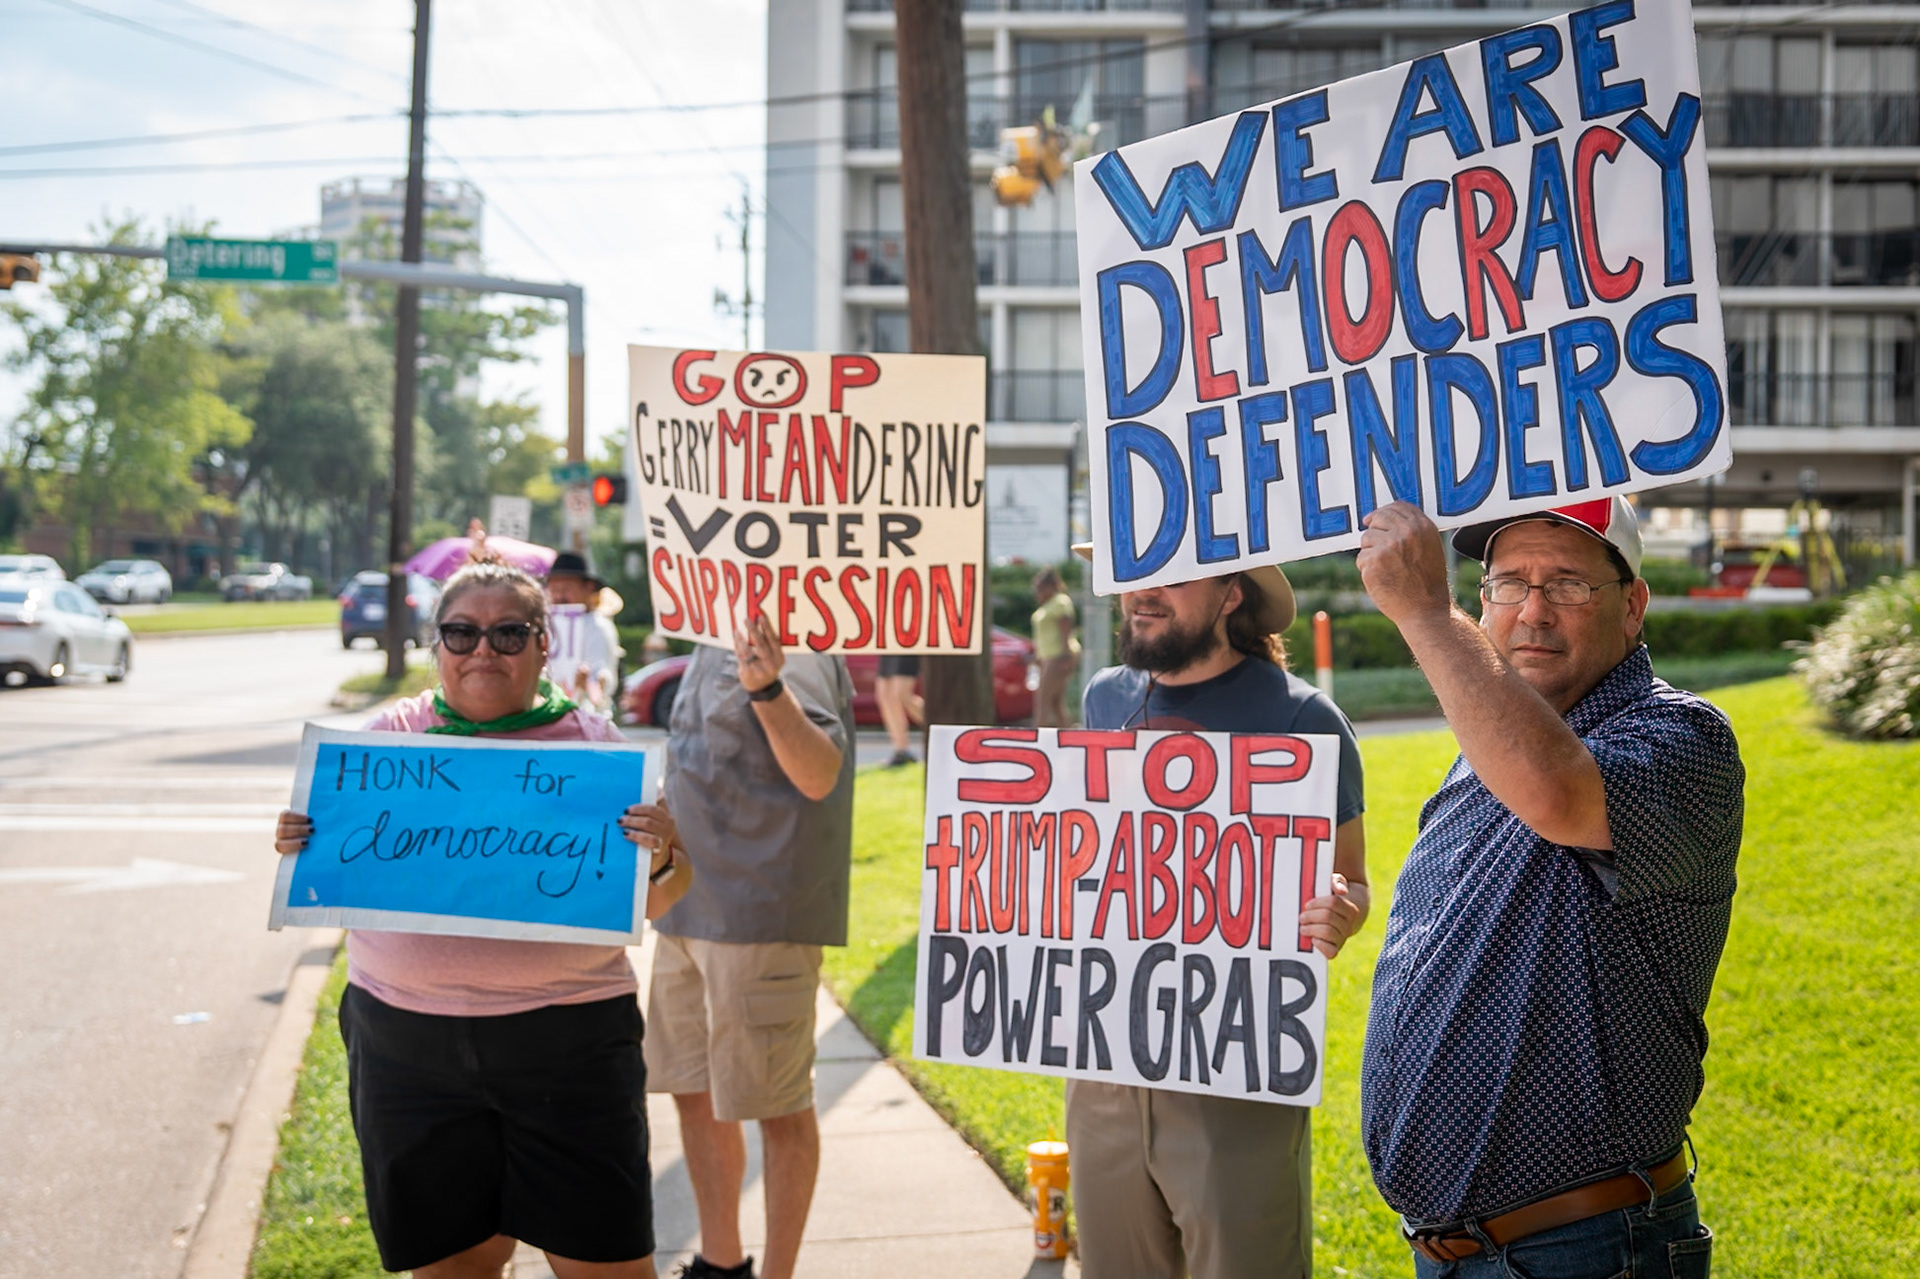 Detering
GOP
GERRYMEANDERING
=VOTER
SUPPRESSION
WE ARE
DEMOCRACY
DEFENDERS
HONK for
democracy!
STOP
tRUMP-ABBOTT
POWER GRAB